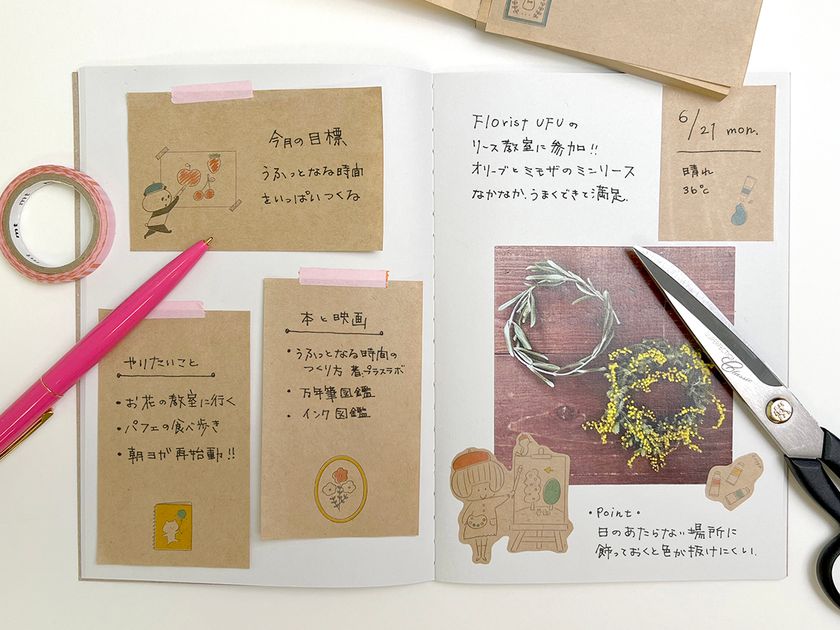 今月の目標
うふっとなる時間
をいっぱいつくる
やりたいこと
・お花の教室に行く
・パフェの食べ歩き
・朝ヨガ再始動!!
本と映画
・うふっとなる時間の
つくり方 著.プラスラボ
・万年筆図鑑
・インク図鑑
Florist UFUの
リース教室に参加!!
オリーブとミモザのミニリース
なかなか、うまくできて満足.
6/21 mon.
晴れ
36℃
・Point・
日のあたらない場所に
飾っておくと色が抜けにくい.
mt